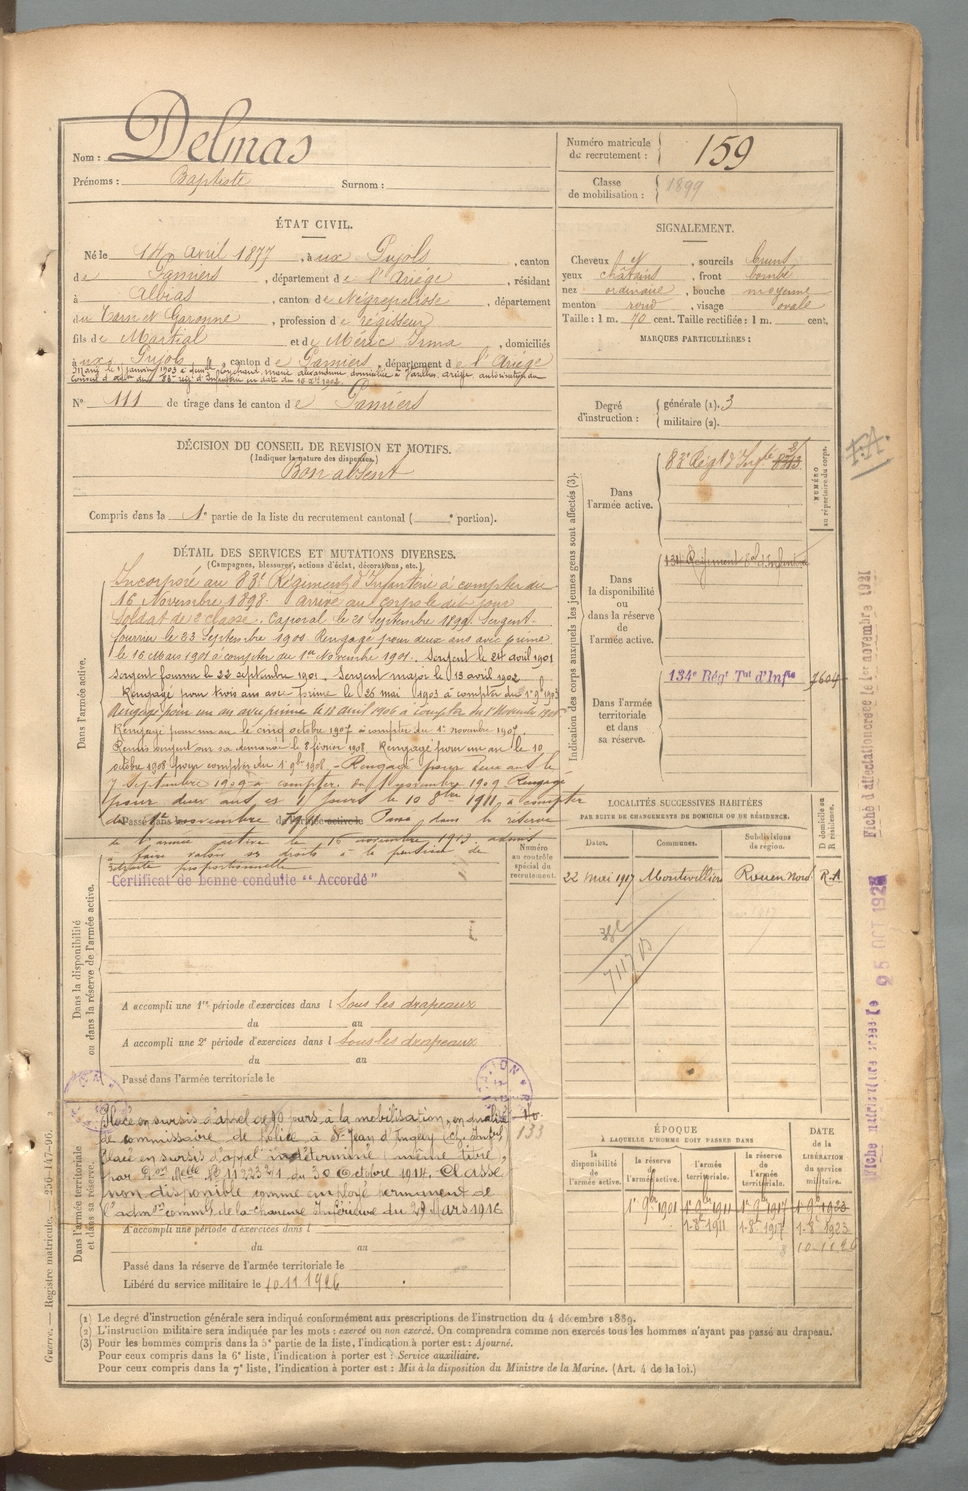 Nom : Delmas
Prénoms : Baptiste Surnom :
Numéro matricule
de recrutement : 159
Classe
de mobilisation : 1899
ÉTAT CIVIL.
Né le 14 avril 1877, à ux Pujols, canton
de Pamiers, département de l'Ariége, résidant
à Albias, canton de Négrepelisse, département
du Tarn et Garonne, profession de régisseur
fils de Martial et de Méric Irma, domiciliés
à ux Pujols, canton de Pamiers, département de l'Ariége
Marié le 11 janvier 1903 à domiciliée à Varilhes, Ariège, autorisation du
Conseil d' du 83e rég. d'Infanterie en date du 16 Xbre 1902.
N° 111 de tirage dans le canton de Pamiers
SIGNALEMENT.
Cheveux et, sourcils bruns
yeux châtains, front bombé
nez ordinaire, bouche moyenne
menton rond, visage ovale
Taille : 1 m. 70 cent. Taille rectifiée : 1 m. cent.
MARQUES PARTICULIÈRES :
Degré
d'instruction : générale (1). 3
militaire (2).
DÉCISION DU CONSEIL DE REVISION ET MOTIFS.
(Indiquer la nature des dispenses.)
Bon absent
Compris dans la 1e partie de la liste du recrutement cantonal ( e portion).
DÉTAIL DES SERVICES ET MUTATIONS DIVERSES.
(Campagnes, blessures, actions d'éclat, décorations, etc.)
Dans l'armée active.
Incorporé au 83e Régiment d'Infanterie à compter du
16 Novembre 1898. Arrivé au corps le dit jour
Soldat de 2e classe. Caporal le 21 Septembre 1899. Sergent-
fourrier le 23 Septembre 1900 Rengagé pour deux ans avec prime
le 16 Mars 1901 à compter du 1er Novembre 1901. Sergent le 24 avril 1901
Sergent fourrier le 22 septembre 1901. Sergent major le 13 avril 1902
Rengagé pour trois ans avec prime le 26 mai 1903 à compter du 1er 9bre 1903
Rengagé pour un an avec prime le 18 avril 1906 à compter du 1er Novembre 1906
Rengagé pour un an le cinq octobre 1907 à compter du 1er novembre 1907
Remis sergent sur sa demande le 8 février 1908 Rengagé pour un an le 10
octobre 1908 pour compter du 1er 9bre 1908. - Rengagé pour deux ans le
7 Septembre 1909 à compter du 1er Novembre 1909 Rengagé
pour deux ans et 11 jours le 10 8bre 1911, à compter
du 1er novembre 1911 Passé dans la réserve
de l'armée active le 16 novembre 1913 admis
à faire valoir ses droits à la pension de
retraite proportionnelle
Certificat de bonne conduite "Accordé"
Dans la disponibilité
ou dans la réserve de l'armée active.
A accompli une 1re période d'exercices dans l Sous les drapeaux
du au
A accompli une 2e période d'exercices dans l Sous les drapeaux
du au
Passé dans l'armée territoriale le
Dans l'armée territoriale
et dans sa réserve.
Placé en sursis d'appel de 90 jours, à la mobilisation, en qualité
de commissaire de Police à St Jean d'Angély (Chte Infre)
Placé en sursis d'appel indéterminé (même titre)
par Don Melle No 11223 2/1 du 30 Octobre 1914. Classé
non disponible comme employé permanent de
l'admon commle de la Charente Inférieure du 29 Mars 1916
A accompli une période d'exercices dans l
du au
Passé dans la réserve de l'armée territoriale le
Libéré du service militaire le 10.11 1926
Numéro
au contrôle
spécial du
recrutement.
10
133
Indication des corps auxquels les jeunes gens sont affectés (3).
NUMÉRO
au répertoire du corps.
Dans
l'armée active.
83e Régt d'Infie
Dans
la disponibilité
ou
dans la réserve
de
l'armée active.
Dans l'armée
territoriale
et dans
sa réserve.
134e Régt Tal d'Infie 9604
F.A.
LOCALITÉS SUCCESSIVES HABITÉES
PAR SUITE DE CHANGEMENTS DE DOMICILE OU DE RÉSIDENCE.
Dates. Communes. Subdivisions
de région. D domicile ou
R résidence.
22 mai 1917 Montivilliers Rouen Nord R.A
ÉPOQUE
À LAQUELLE L'HOMME DOIT PASSER DANS
la
disponibilité
de l'armée active.
la réserve
de
l'armée active.
l'armée
territoriale.
la réserve
de
l'armée
territoriale.
DATE
de la
LIBÉRATION
du service
militaire.
1er 9bre 1901 1er 9bre 1911 1er 9bre 1917 1er 9bre 1923
1-8bre 1911 1-8bre 1917 1-8bre 1923
10-11 26
Fiche d'affectation créée le 1er novembre 1921
Fiche matriculaire créée le 25 OCT 1927
(1) Le degré d'instruction générale sera indiqué conformément aux prescriptions de l'instruction du 4 décembre 1889.
(2) L'instruction militaire sera indiquée par les mots : exercé ou non exercé. On comprendra comme non exercés tous les hommes n'ayant pas passé au drapeau.
(3) Pour les hommes compris dans la 5e partie de la liste, l'indication à porter est : Ajourné.
Pour ceux compris dans la 6e liste, l'indication à porter est : Service auxiliaire.
Pour ceux compris dans la 7e liste, l'indication à porter est : Mis à la disposition du Ministre de la Marine. (Art. 4 de la loi.)
Guerre. — Registre matricule. 256-147-96.